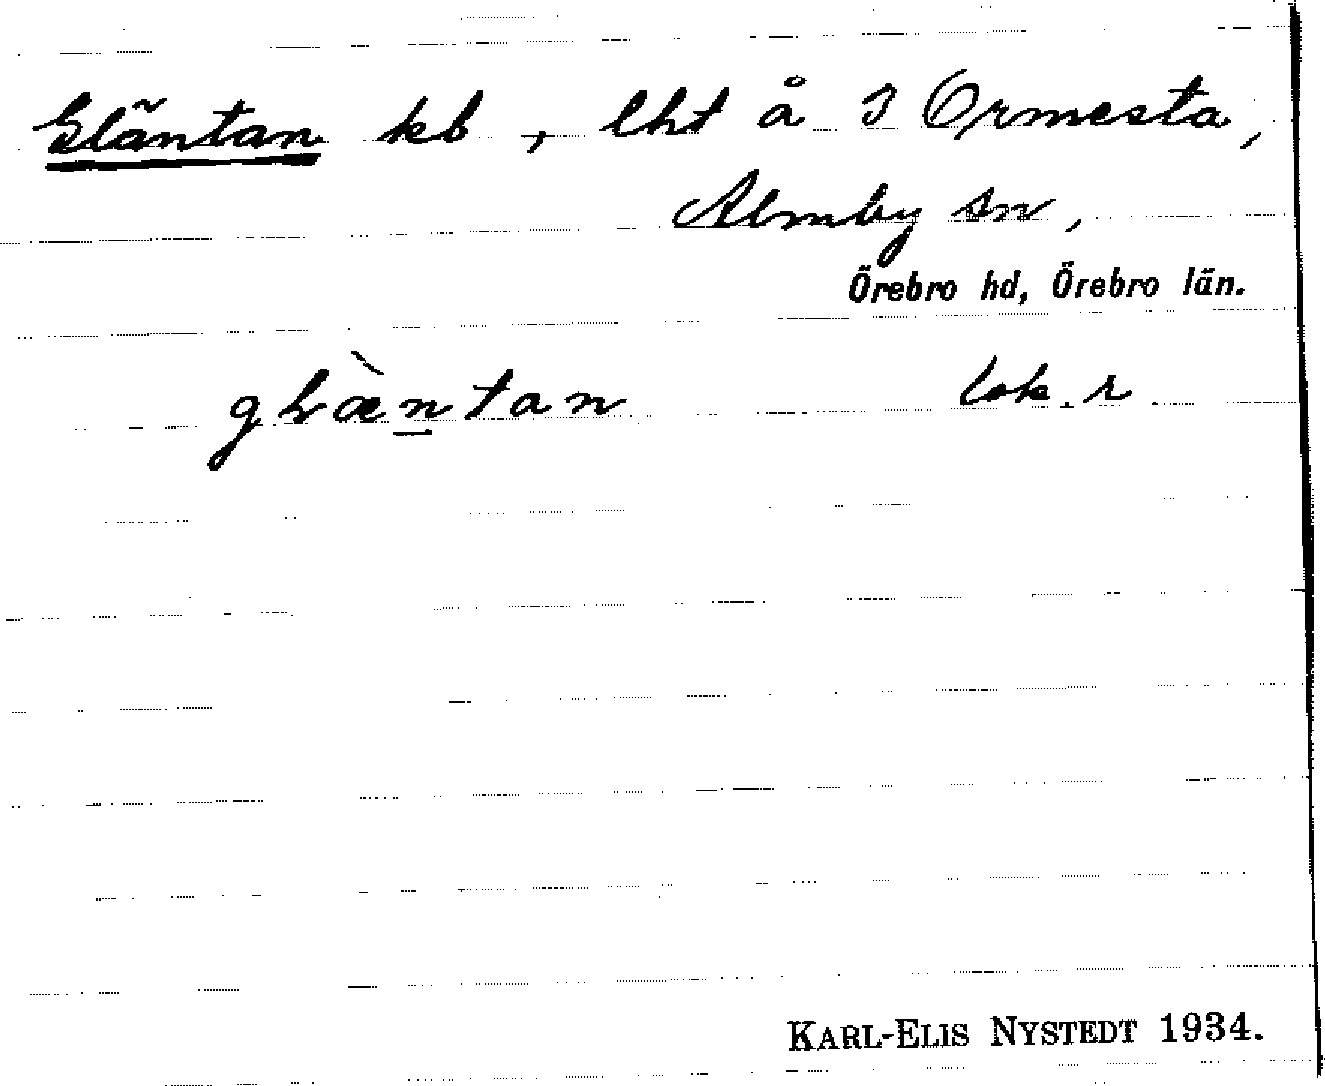 Gläntan kb, lht å 3 Ormesta,
Almby sn,
Örebro hd, Örebro län.
glæ̀n̲tan lok. r
KARL-ELIS NYSTEDT 1934.